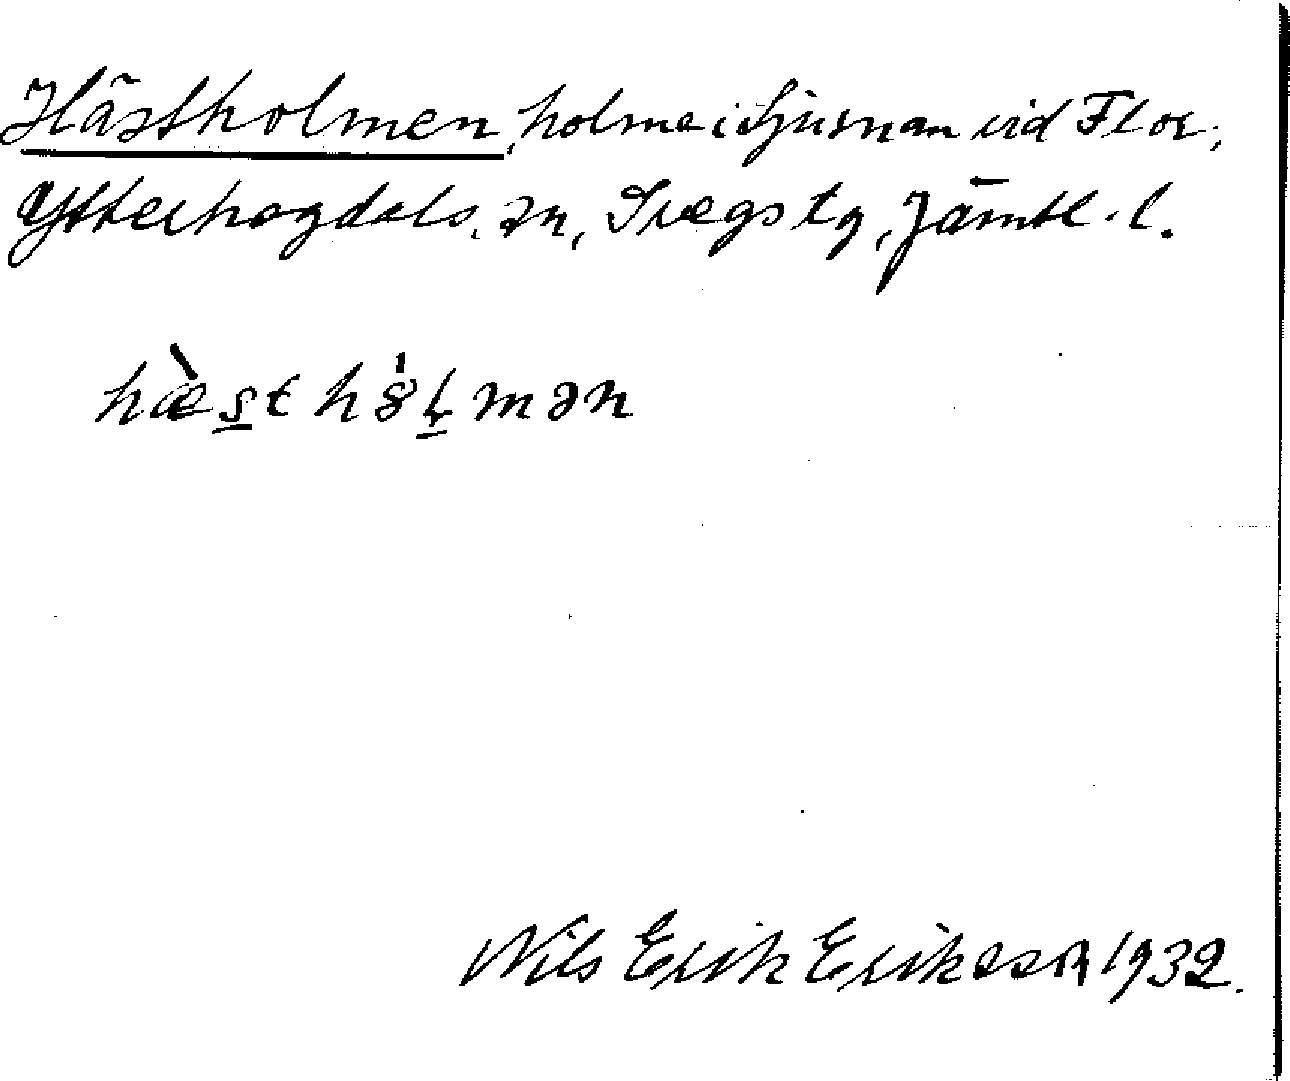 Hästholmen, holme i Ljusnan vid Flor,
Ytterhogdals sn, Svegs tg, Jämtl. l.
hæ̀s̲t hȯ8ḷmən
Nils Erik Eriksson 1932.